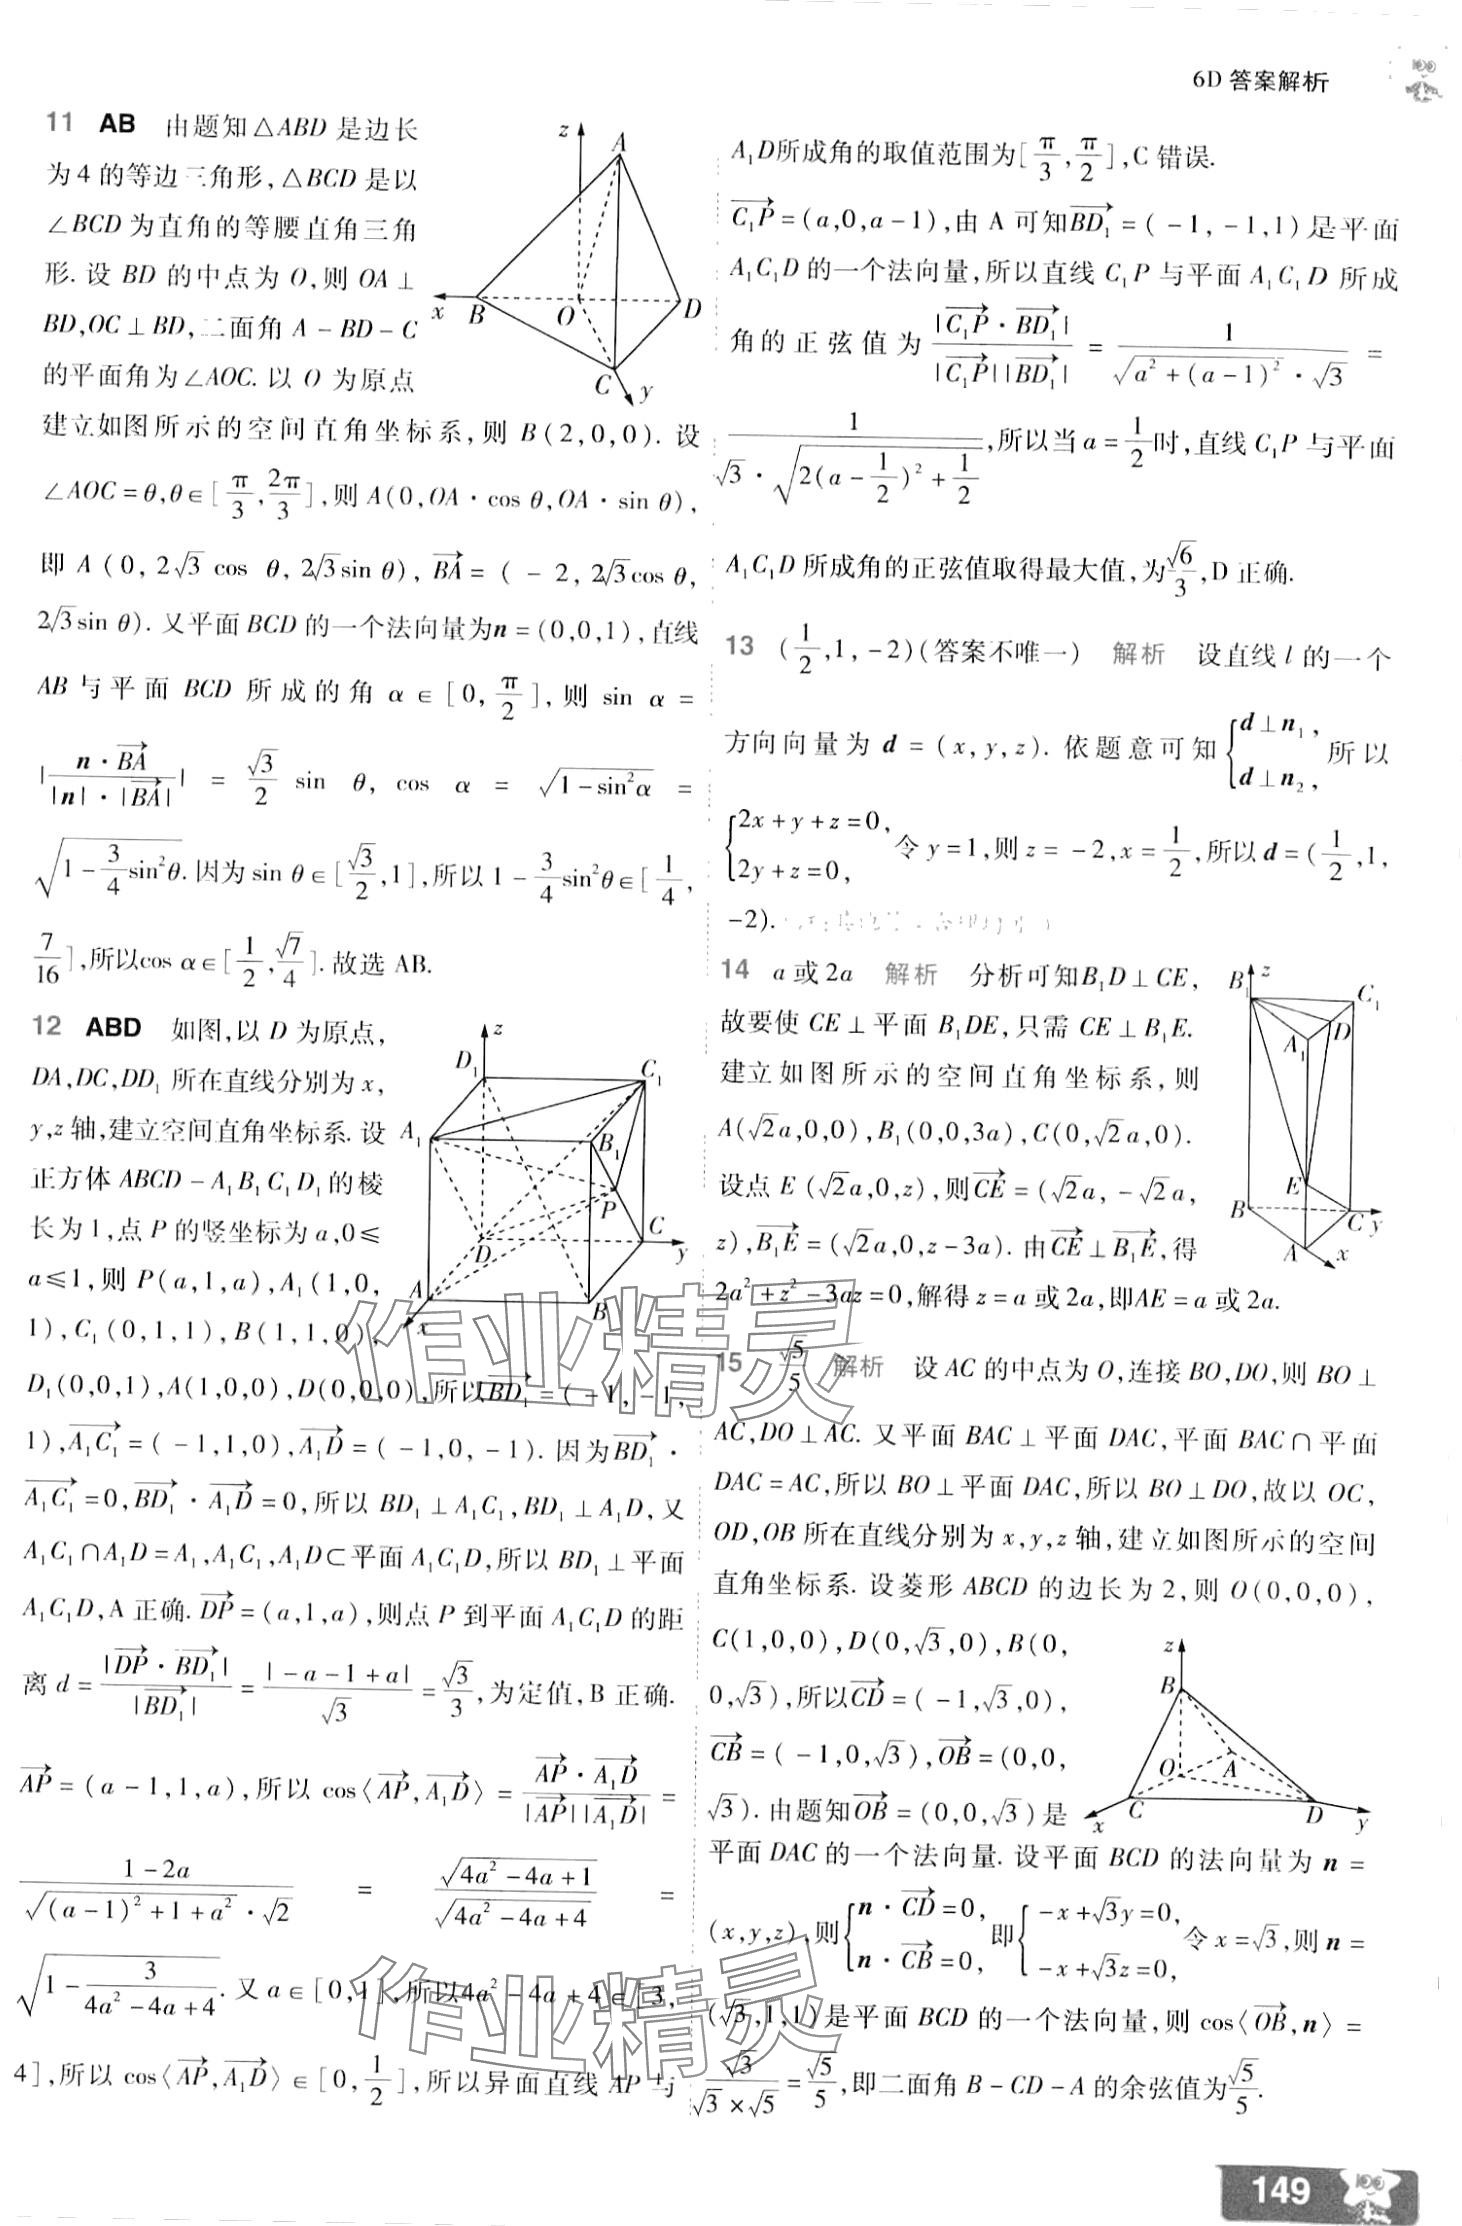 6D 答案解析
11 AB 由题知△ABD 是边长
为 4 的等边三角形,△BCD 是以
∠BCD 为直角的等腰直角三角
形. 设 BD 的中点为 O,则 OA⊥
BD,OC⊥BD,二面角 A-BD-C
的平面角为∠AOC. 以 O 为原点
建立如图所示的空间直角坐标系,则 B(2,0,0). 设
∠AOC=θ,θ∈[π/3,2π/3],则 A(0,OA·cos θ,OA·sin θ),
即 A (0, 2√3 cos θ, 2√3sin θ), BA→ = (-2, 2√3cos θ,
2√3sin θ). 又平面 BCD 的一个法向量为n=(0,0,1),直线
AB 与平面 BCD 所成的角 α∈[0,π/2],则 sin α =
|n·BA→/(|n|·|BA→|)| = √3/2 sin θ, cos α = √(1-sin²α) =
√(1-3/4 sin²θ). 因为 sin θ∈[√3/2,1],所以 1-3/4 sin²θ∈[1/4,
7/16],所以cos α∈[1/2,√7/4]. 故选 AB.
z A B O D C x y
12 ABD 如图,以 D 为原点,
DA,DC,DD₁ 所在直线分别为 x,
y,z 轴,建立空间直角坐标系. 设
正方体 ABCD-A₁B₁C₁D₁ 的棱
长为 1,点 P 的竖坐标为 a,0≤
a≤1,则 P(a,1,a),A₁(1,0,
1),C₁(0,1,1),B(1,1,0),
D₁(0,0,1),A(1,0,0),D(0,0,0),所以BD₁→=(-1,-1,
1),A₁C₁→=(-1,1,0),A₁D→=(-1,0,-1). 因为BD₁→·
A₁C₁→=0,BD₁→·A₁D→=0,所以 BD₁⊥A₁C₁,BD₁⊥A₁D,又
A₁C₁∩A₁D=A₁,A₁C₁,A₁D⊂平面 A₁C₁D,所以 BD₁⊥平面
A₁C₁D,A 正确. DP→=(a,1,a),则点 P 到平面 A₁C₁D 的距
离 d=|DP→·BD₁→|/|BD₁→|=|-a-1+a|/√3=√3/3,为定值,B 正确.
AP→=(a-1,1,a),所以 cos⟨AP→,A₁D→⟩=AP→·A₁D→/(|AP→||A₁D→|)=
(1-2a)/(√((a-1)²+1+a²)·√2) = √(4a²-4a+1)/√(4a²-4a+4) =
√(1-3/(4a²-4a+4)). 又 a∈[0,1],所以4a²-4a+4∈[3,
4],所以 cos⟨AP→,A₁D→⟩∈[0,1/2],所以异面直线 AP 与
z D₁ C₁ A₁ B₁ P D C y A B x
A₁D所成角的取值范围为[π/3,π/2],C 错误.
C₁P→=(a,0,a-1),由 A 可知BD₁→=(-1,-1,1)是平面
A₁C₁D 的一个法向量,所以直线 C₁P 与平面 A₁C₁D 所成
角的正弦值为|C₁P→·BD₁→|/(|C₁P→||BD₁→|) = 1/(√(a²+(a-1)²)·√3) =
1/(√3·√(2(a-1/2)²+1/2)),所以当 a=1/2时,直线 C₁P 与平面
A₁C₁D 所成角的正弦值取得最大值,为√6/3,D 正确.
13 (1/2,1,-2)(答案不唯一) 解析 设直线 l 的一个
方向向量为 d=(x,y,z). 依题意可知{d⊥n₁, d⊥n₂, 所以
{2x+y+z=0, 2y+z=0, 令 y=1,则 z=-2,x=1/2,所以 d=(1/2,1,
-2).
14 a 或 2a 解析 分析可知B₁D⊥CE,
故要使 CE⊥平面 B₁DE,只需 CE⊥B₁E.
建立如图所示的空间直角坐标系,则
A(√2a,0,0),B₁(0,0,3a),C(0,√2a,0).
设点 E (√2a,0,z),则CE→=(√2a,-√2a,
z),B₁E→=(√2a,0,z-3a). 由CE→⊥B₁E→,得
2a²+z²-3az=0,解得 z=a 或 2a,即AE=a 或 2a.
B₁ z C₁ D A₁ E B C y A x
15 √5/5 解析 设 AC 的中点为 O,连接 BO,DO,则 BO⊥
AC,DO⊥AC. 又平面 BAC⊥平面 DAC,平面 BAC∩平面
DAC=AC,所以 BO⊥平面 DAC,所以 BO⊥DO,故以 OC,
OD,OB 所在直线分别为 x,y,z 轴,建立如图所示的空间
直角坐标系. 设菱形 ABCD 的边长为 2,则 O(0,0,0),
C(1,0,0),D(0,√3,0),B(0,
0,√3),所以CD→=(-1,√3,0),
CB→=(-1,0,√3),OB→=(0,0,
√3). 由题知OB→=(0,0,√3)是
平面 DAC 的一个法向量. 设平面 BCD 的法向量为 n=
(x,y,z),则{n·CD→=0, n·CB→=0, 即{-x+√3y=0, -x+√3z=0, 令 x=√3,则 n=
(√3,1,1)是平面 BCD 的一个法向量,则 cos⟨OB→,n⟩=
√3/(√3×√5)=√5/5,即二面角 B-CD-A 的余弦值为√5/5.
z B O A C D x y
作业精灵
作业精灵
149